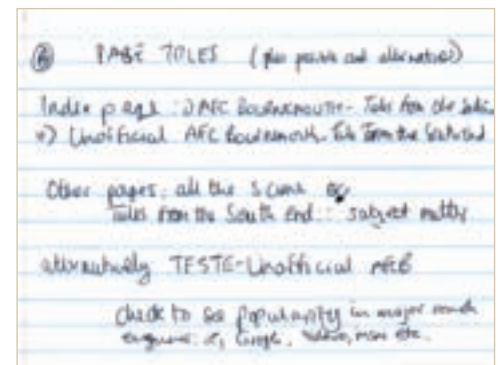 PAGE TITLES (plus points and alternatives)
Index page: AFC Bournemouth - Tales from the South
Unofficial AFC Bournemouth - Tales From the South End
Other pages: all the same
Tales from the South End :: subject matter
alternatively TESTE - Unofficial AFCB
check to see popularity in major search
engines: Google, Yahoo, msn etc.